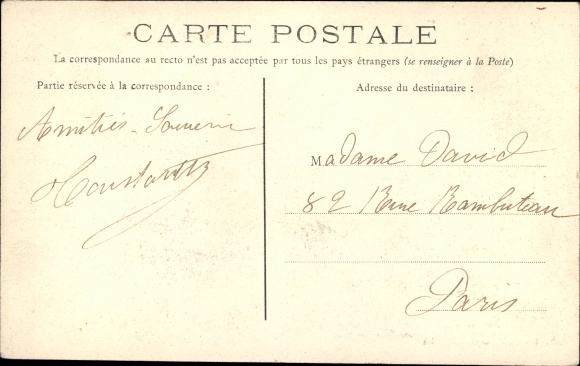 CARTE POSTALE
La correspondance au recto n'est pas acceptée par tous les pays étrangers (se renseigner à la Poste)
Partie réservée à la correspondance :
Amitiés - Souvenir
Adresse du destinataire :
Madame David
82 Rue Rambuteau
Paris